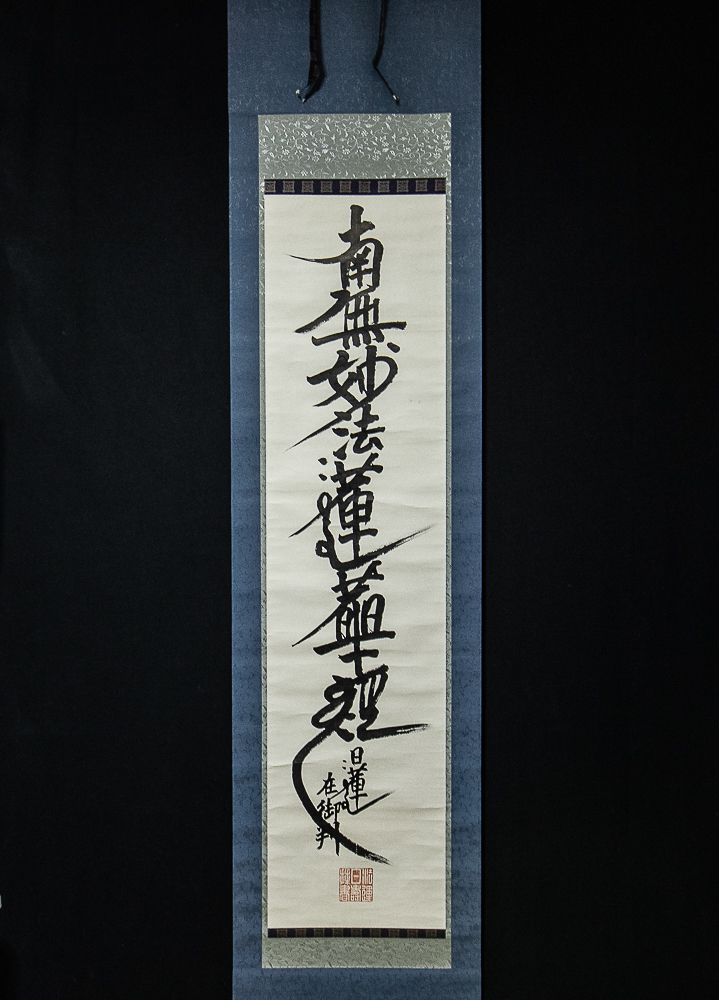 南無妙法蓮華経
日蓮
在御判